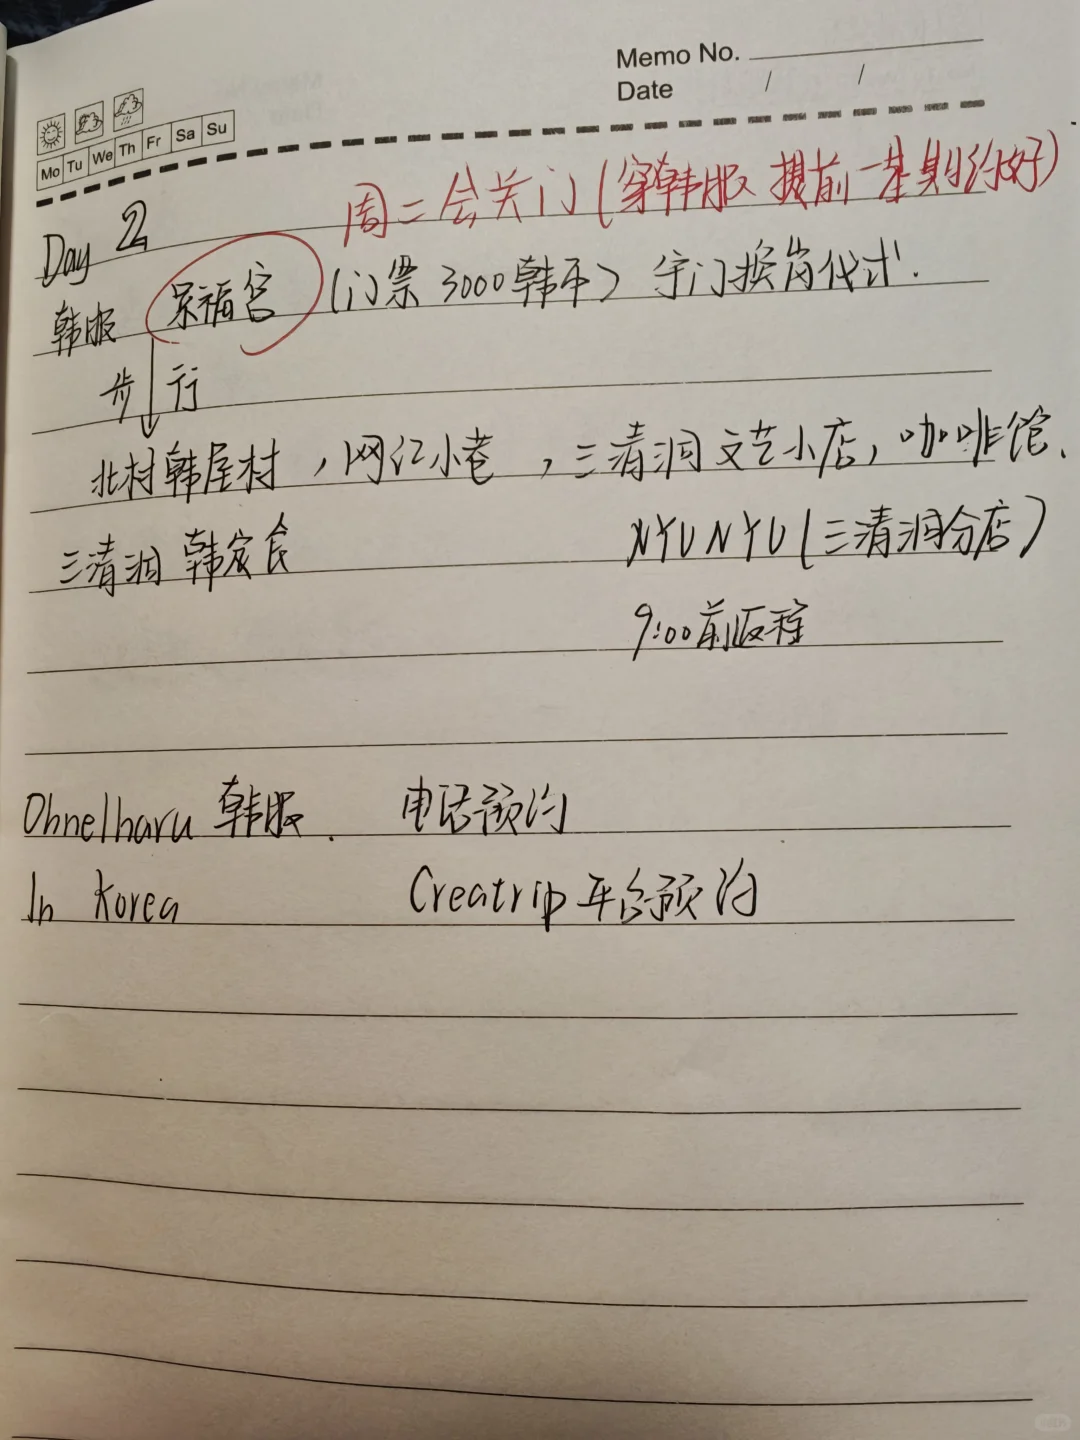 Memo No.
Date / /
Mo Tu We Th Fr Sa Su
周二会关门(穿韩服 提前一星期约好)
Day 2
韩服 景福宫 (门票 3000韩币) 守门换岗仪式.
步行
北村韩屋村,网红小巷,三清洞文艺小店,咖啡馆.
三清洞 韩家食 NYUNYU(三清洞分店)
9:00前返程
Ohnelharu 韩服. 电话预约
In Korea Creatrip平台预约